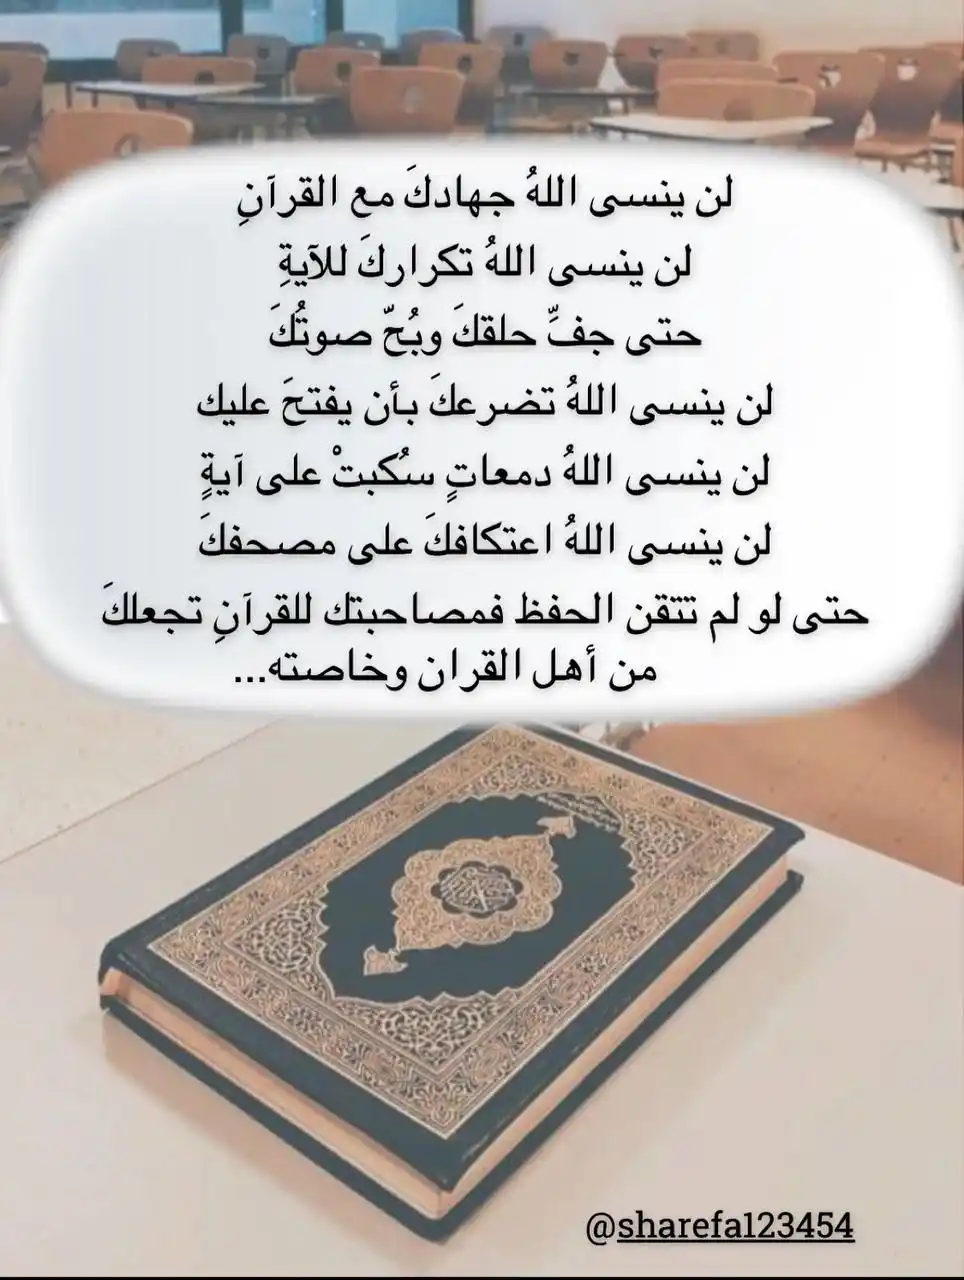 لن ينسى اللهُ جهادكَ مع القرآنِ
لن ينسى اللهُ تكراركَ للآيةِ
حتى جفِّ حلقكَ وبُحّ صوتُكَ
لن ينسى اللهُ تضرعكَ بأن يفتحَ عليك
لن ينسى اللهُ دمعاتٍ سُكبتْ على آيةٍ
لن ينسى اللهُ اعتكافكَ على مصحفكَ
حتى لو لم تتقن الحفظ فمصاحبتك للقرآنِ تجعلكَ
من أهل القران وخاصته...
@sharefa123454